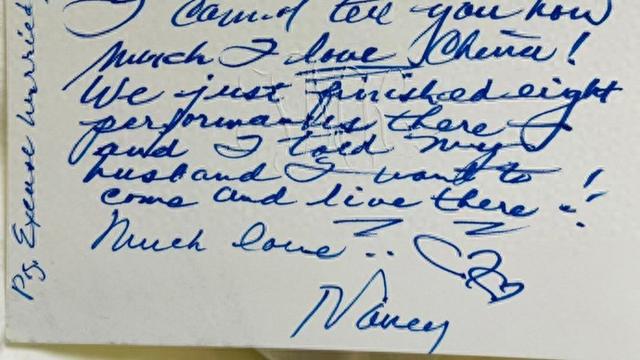 I cannot tell you how
much I love China!
We just finished eight
performances there -
and I told my
husband I want to
come and live there -!
Much love!..
Nancy
Ps. Excuse hurried